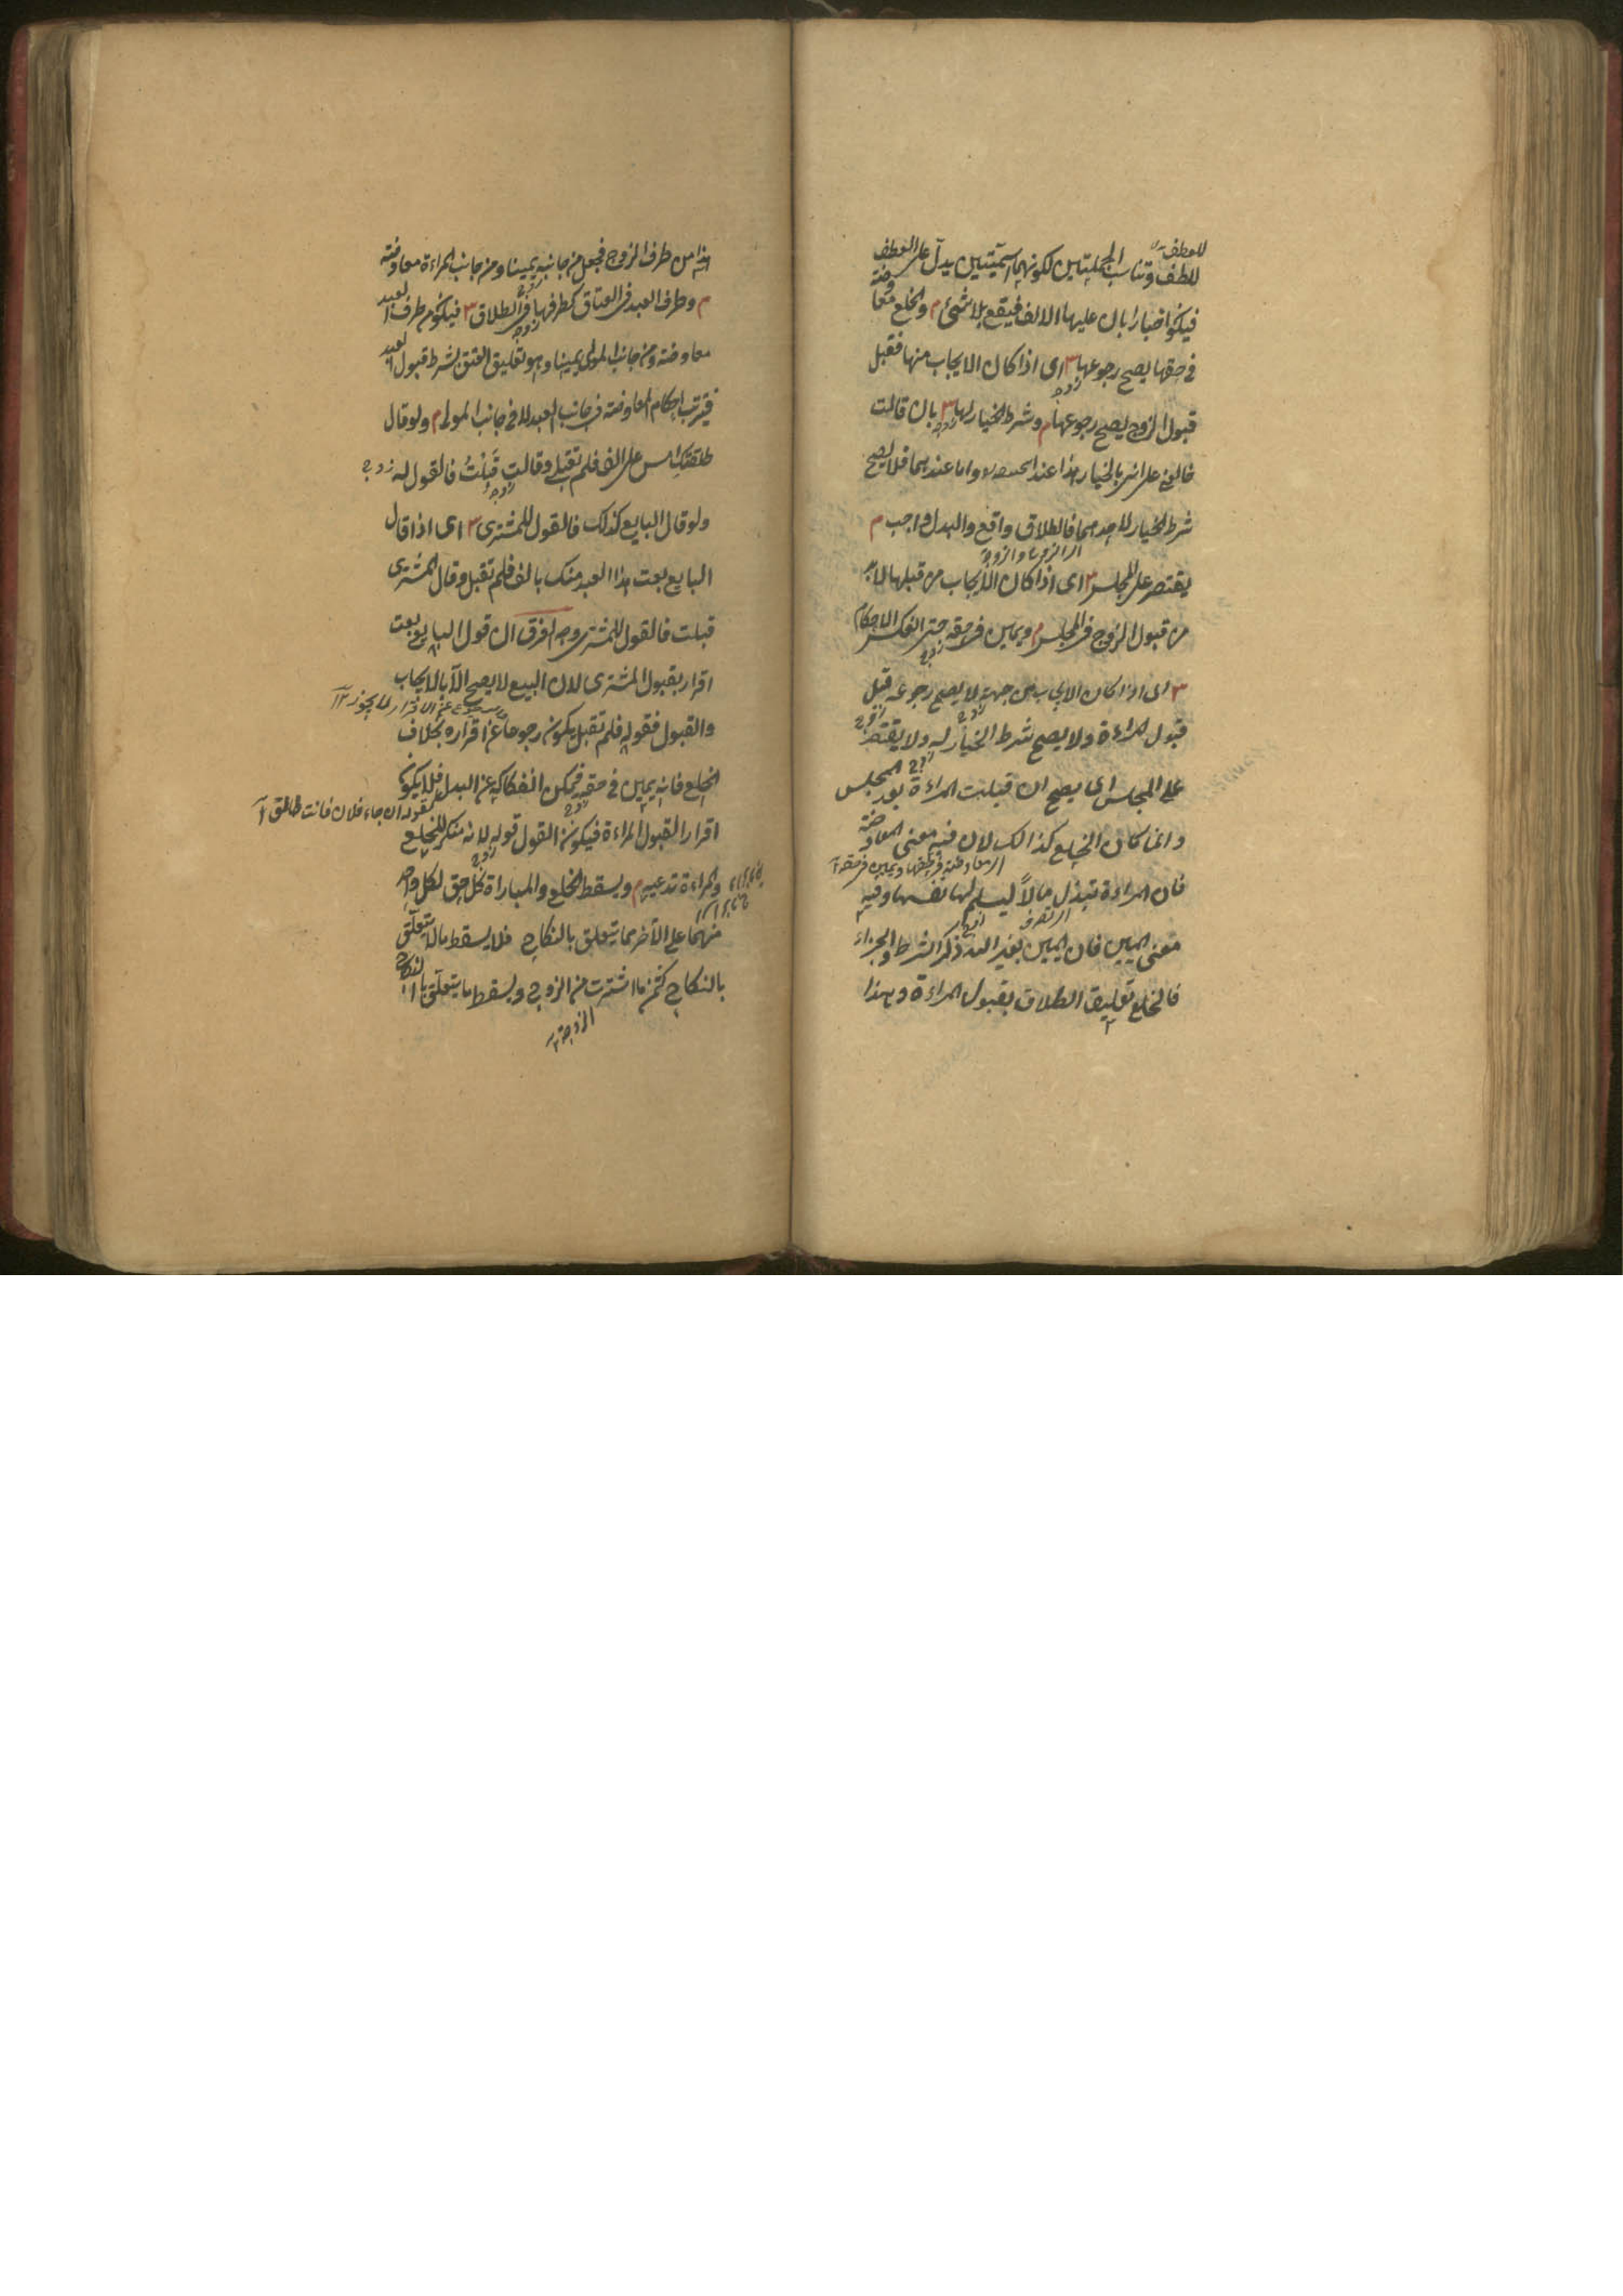 للعطف
للطف وتناسب الجملتين لكونهما اسميتين يدل على العطف
فيكون اخبارا بان عليها الالف فيقع بلا شئ م والخلع معاوضة
في حقها يصح رجوعها ش اى اذا كان الايجاب منها فقبل
زوجه
قبول الزوج يصح رجوعها م وشرط الخيار لها ش بان قالت
زوجه
خالعني على انى بالخيار هذا عند ابي حنيفة واما عندهما فلا يصح
شرط الخيار لاحدهما فالطلاق واقع والبدل واجب م
يقتصر على المجلس ش اى اذا كان الايجاب من قبلها لا بد
من قبول الزوج في المجلس م ويمين في حقه حتى انعكس الاحكام
زوج
ش اى اذا كان الايجاب من جهته لا يصح رجوعه قبل
زوج
قبول المراءة ولا يصح شرط الخيار له ولا يقتصر
زوج
على المجلس اى يصح ان قبلت المراءة بعد المجلس
وانما كان الخلع كذالك لان فيه معنى المعاوضة
اى معاوضة في حقها ويمين في حقه
فان المراءة تبذل مالاً ليسلم لها نفسها وفيه
معنى اليمين فان اليمين بغير الله ذكر الشرط والجزاء
فالخلع تعليق الطلاق بقبول المراءة وهذا
من طرف الزوج فجعل من جانبه يمينا ومن جانب المراءة معاوضة
م وطرف العبد في العتاق كطرفها في الطلاق ش فيكون من طرف العبد
زوجه
معاوضة ومن جانب المولى يمينا وهو تعليق العتق بشرط قبول العبد
فيترتب احكام المعاوضة في جانب العبد لا في جانب المولى م ولو قال
طلقتك امس على الف فلم تقبلي وقالت قَبِلْتُ فالقول له
زوج
ولو قال البايع كذلك فالقول للمشترى ش اى اذا قال
البايع بعت هذا العبد منك بالف فلم تقبل وقال المشترى
قبلت فالقول للمشترى وجه الفرق ان قول البايع بعت
اقرار بقبول المشترى لان البيع لا يصح الا بالايجاب
والقبول فقوله فلم تقبل يكون رجوعا عن اقراره بخلاف
الخلع فانه يمين في حقه فيمكن انفكاكه عن البدل فلا يكون
كقوله ان جاء فلان فانت طالق
اقرارا لقبول المراءة فيكون القول قوله لانه منكر للخلع
زوج
والمراءة تدعيه م ويسقط الخلع والمباراة كل حق لكل واحد
منهما على الآخر مما يتعلق بالنكاح فلا يسقط ما لا يتعلق
بالنكاح كثمن ما اشترت من الزوج ويسقط ما يتعلق بالنكاح
الزوجة